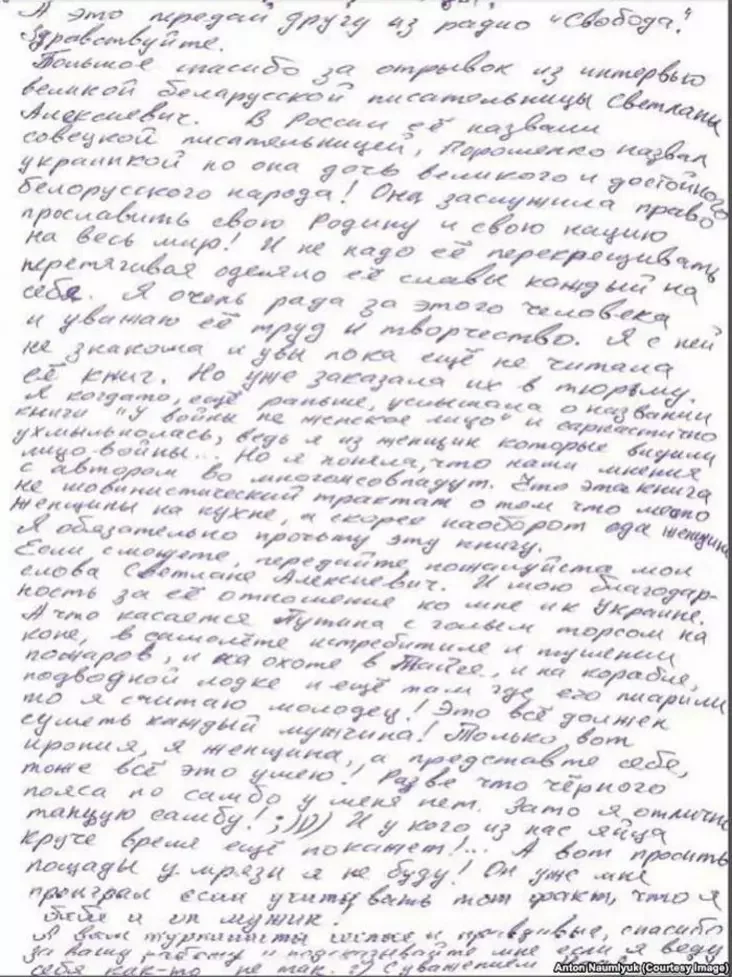 А это передай другу из радио "Свобода".
Здравствуйте.
Большое спасибо за отрывок из интервью
великой беларусской писательницы Светланы
Алексиевич. В России её назвали
совецкой писательницей, Порошенко назвал
украинкой но она дочь великого и достойного
белорусского народа! Она заслужила право
прославить свою Родину и свою нацию
на весь мир! И не надо её перекрещивать
перетягивая одеяло её славы каждый на
себя. Я очень рада за этого человека
и уважаю её труд и творчество. Я с ней
не знакома и увы пока ещё не читала
её книг. Но уже заказала их в тюрьму.
Я когдато, ещё раньше, услышала о названии
книги "У войны не женское лицо" и саркастично
ухмыльнолась, ведь я из женщин которые видили
лицо войны... Но я поняла, что наши мнения
с автором во многом совпадут. Что эта книга
не шовинистический трактат о том что место
женщины на кухне, а скорее наоборот ода женщине
Я обязательно прочьту эту книгу.
Если сможете, передайте, пожалуйста мои
слова Светлане Алексиевич. И мою благодар-
ность за её отношение ко мне и к Украине.
А что касается Путина с голым торсом на
коне, в самолёте истребителе и тушении
пожаров, и на охоте в Тайге, и на корабле,
подводной лодке и ещё там где его пиарили
то я считаю молодец! Это всё должен
суметь каждый мужчина! Только вот
ирония, я женщина, а представте себе,
тоже всё это умею! Разве что чёрного
пояса по самбо у меня нет. Зато я отлично
танцую самбу! ;)))) И у кого из нас яйца
круче время ещё покажет!... А вот просить
пощады у мрязи я не буду! Он уже мне
проиграл если учитывать тот факт, что я
и он мужик.
А вам журналисты и правдивые, спасибо
за вашу работу и подсказывайте мне если я веду
себя как-то не так. С уважением
Anton Naumlyuk (Courtesy Image)